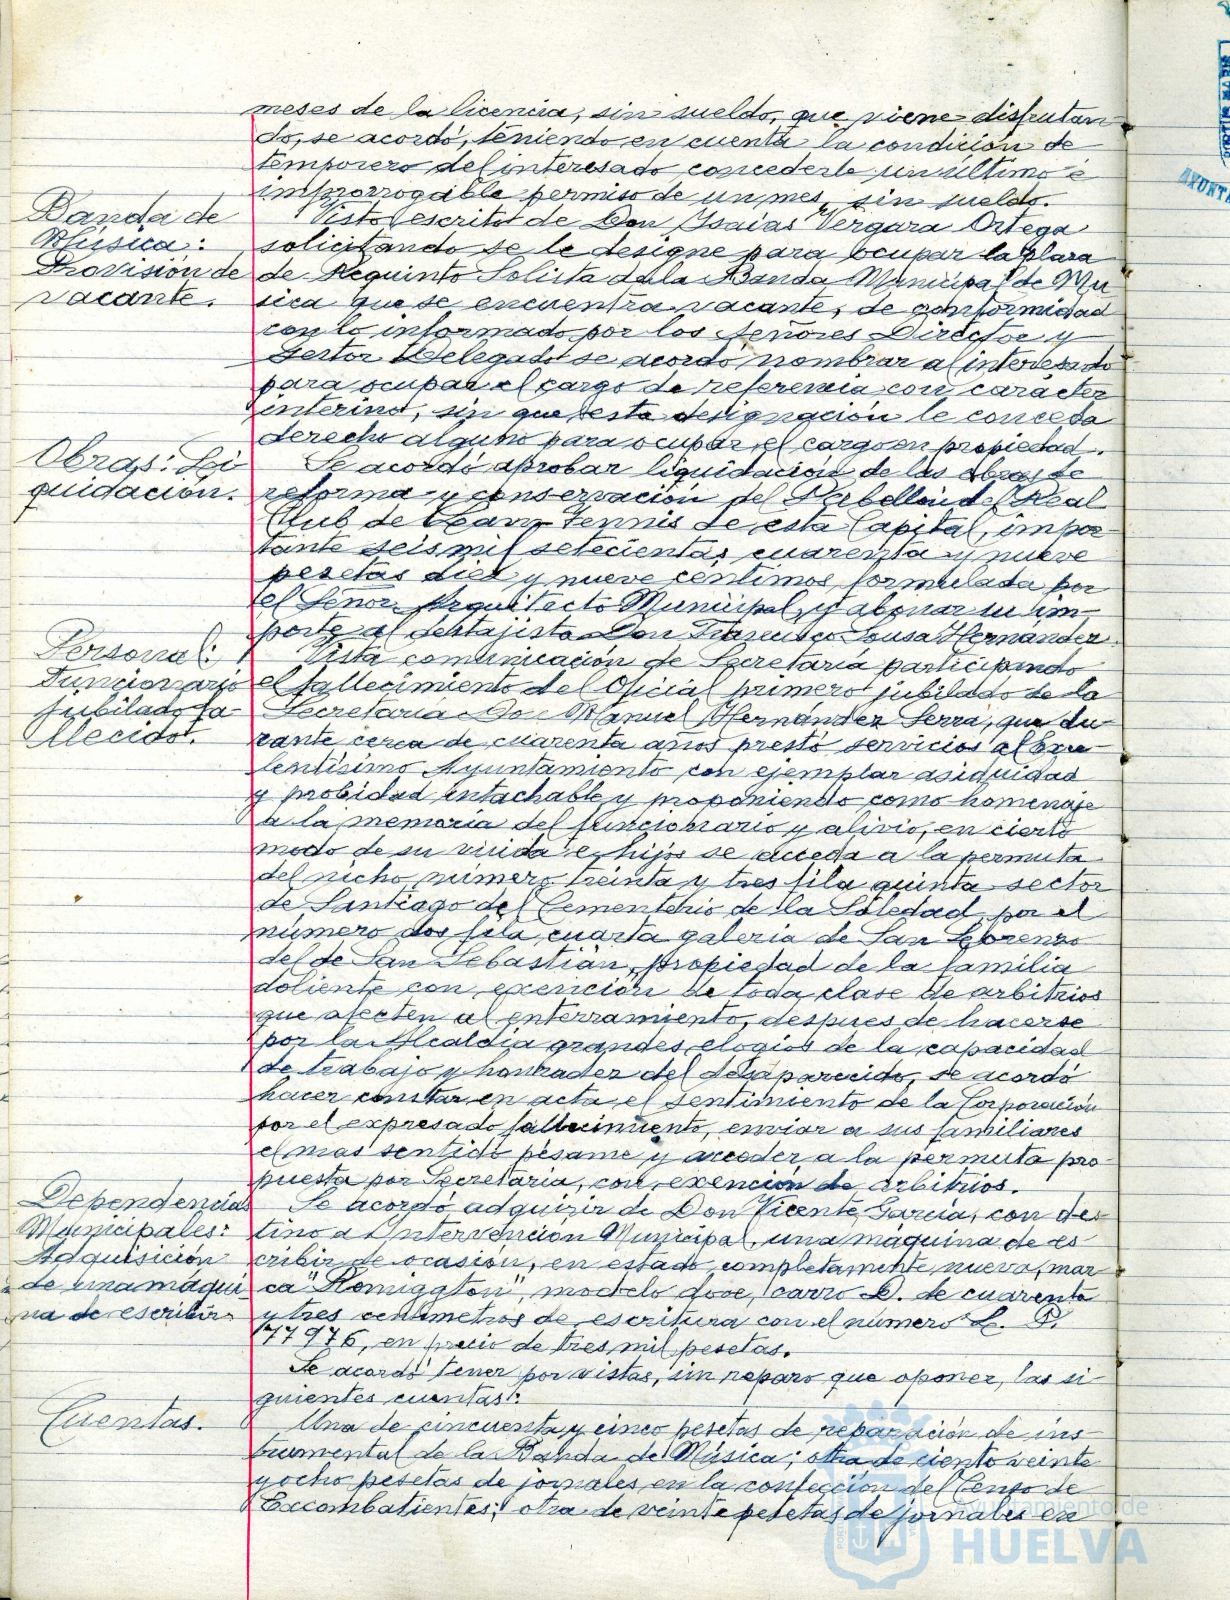 meses de la licencia, sin sueldo, que viene disfrutan
do, se acordó, teniendo en cuenta la condición de
temporero del interesado concederle un último é
improrrogable permiso de un mes, sin sueldo.
Banda de
Música:
Provisión de
vacante.
Visto escrito de Don Isaías Vergara Ortega
solicitando se le designe para ocupar la plaza
de Requinto Solista de la Banda Municipal de Mú
sica que se encuentra vacante, de conformidad
con lo informado por los Señores Director y
Gestor Delegado se acordó nombrar al interesado
para ocupar el cargo de referencia con carácter
interino, sin que esta designación le conceda
derecho alguno para ocupar el cargo en propiedad.
Obras: Li
quidación.
Se acordó aprobar liquidación de las obras de
reforma y conservación del Pabellon del Real
Club de Lawn Tennis de esta Capital, impor-
tante seis mil setecientas cuarenta y nueve
pesetas diez y nueve centimos, formulada por
el Señor Arquitecto Municipal, y abonar su im-
porte al destajista Don Francisco Sousa Hernandez.
Personal:
Funcionario
jubilado fa-
llecido.
Vista comunicación de Secretaría participando
el fallecimiento del Oficial primero jubilado de la
Secretaria Manuel Hernández Serra, que du-
rante cerca de cuarenta años prestó servicios al Exce-
lentísimo Ayuntamiento con ejemplar asiduidad
y probidad intachable y proponiendo como homenaje
a la memoria del funcionario y alivio, en cierto
modo de su viuda e hijos se acceda a la permuta
del nicho número treinta y tres fila quinta sector
de Santiago del Cementerio de la Soledad, por el
número dos fila cuarta galería de San Lorenzo
del de San Sebastián, propiedad de la familia
doliente con exención de toda clase de arbitrios
que afecten al enterramiento, despues de hacerse
por la Alcaldía grandes elogios de la capacidad
de trabajo y honradez del desaparecido, se acordó
hacer constar en acta el sentimiento de la Corporación
por el expresado fallecimiento, enviar a sus familiares
el mas sentido pésame y acceder a la permuta pro-
puesta por Secretaría, con exención de arbitrios.
Dependencias
Municipales:
Adquisición
de una máqui
na de escribir
Se acordó adquirir de Don Vicente García, con des-
tino a Intervención Municipal, una máquina de es
cribir de ocasión, en estado completamente nuevo, mar
ca "Remiggton", modelo doce, carro D. de cuarenta
y tres centímetros de escritura con el número L. P.
77976, en precio de tres mil pesetas.
Cuentas.
Se acordó tener por vistas, sin reparo que oponer, las si-
guientes cuentas:
Una de cincuenta y cinco pesetas de reparación de ins-
trumental de la Banda de Música; otra de ciento veinte
y ocho pesetas de jornales en la confección del Censo de
Excombatientes; otra de veinte pesetas de jornales en
Ayuntamiento de
HUELVA